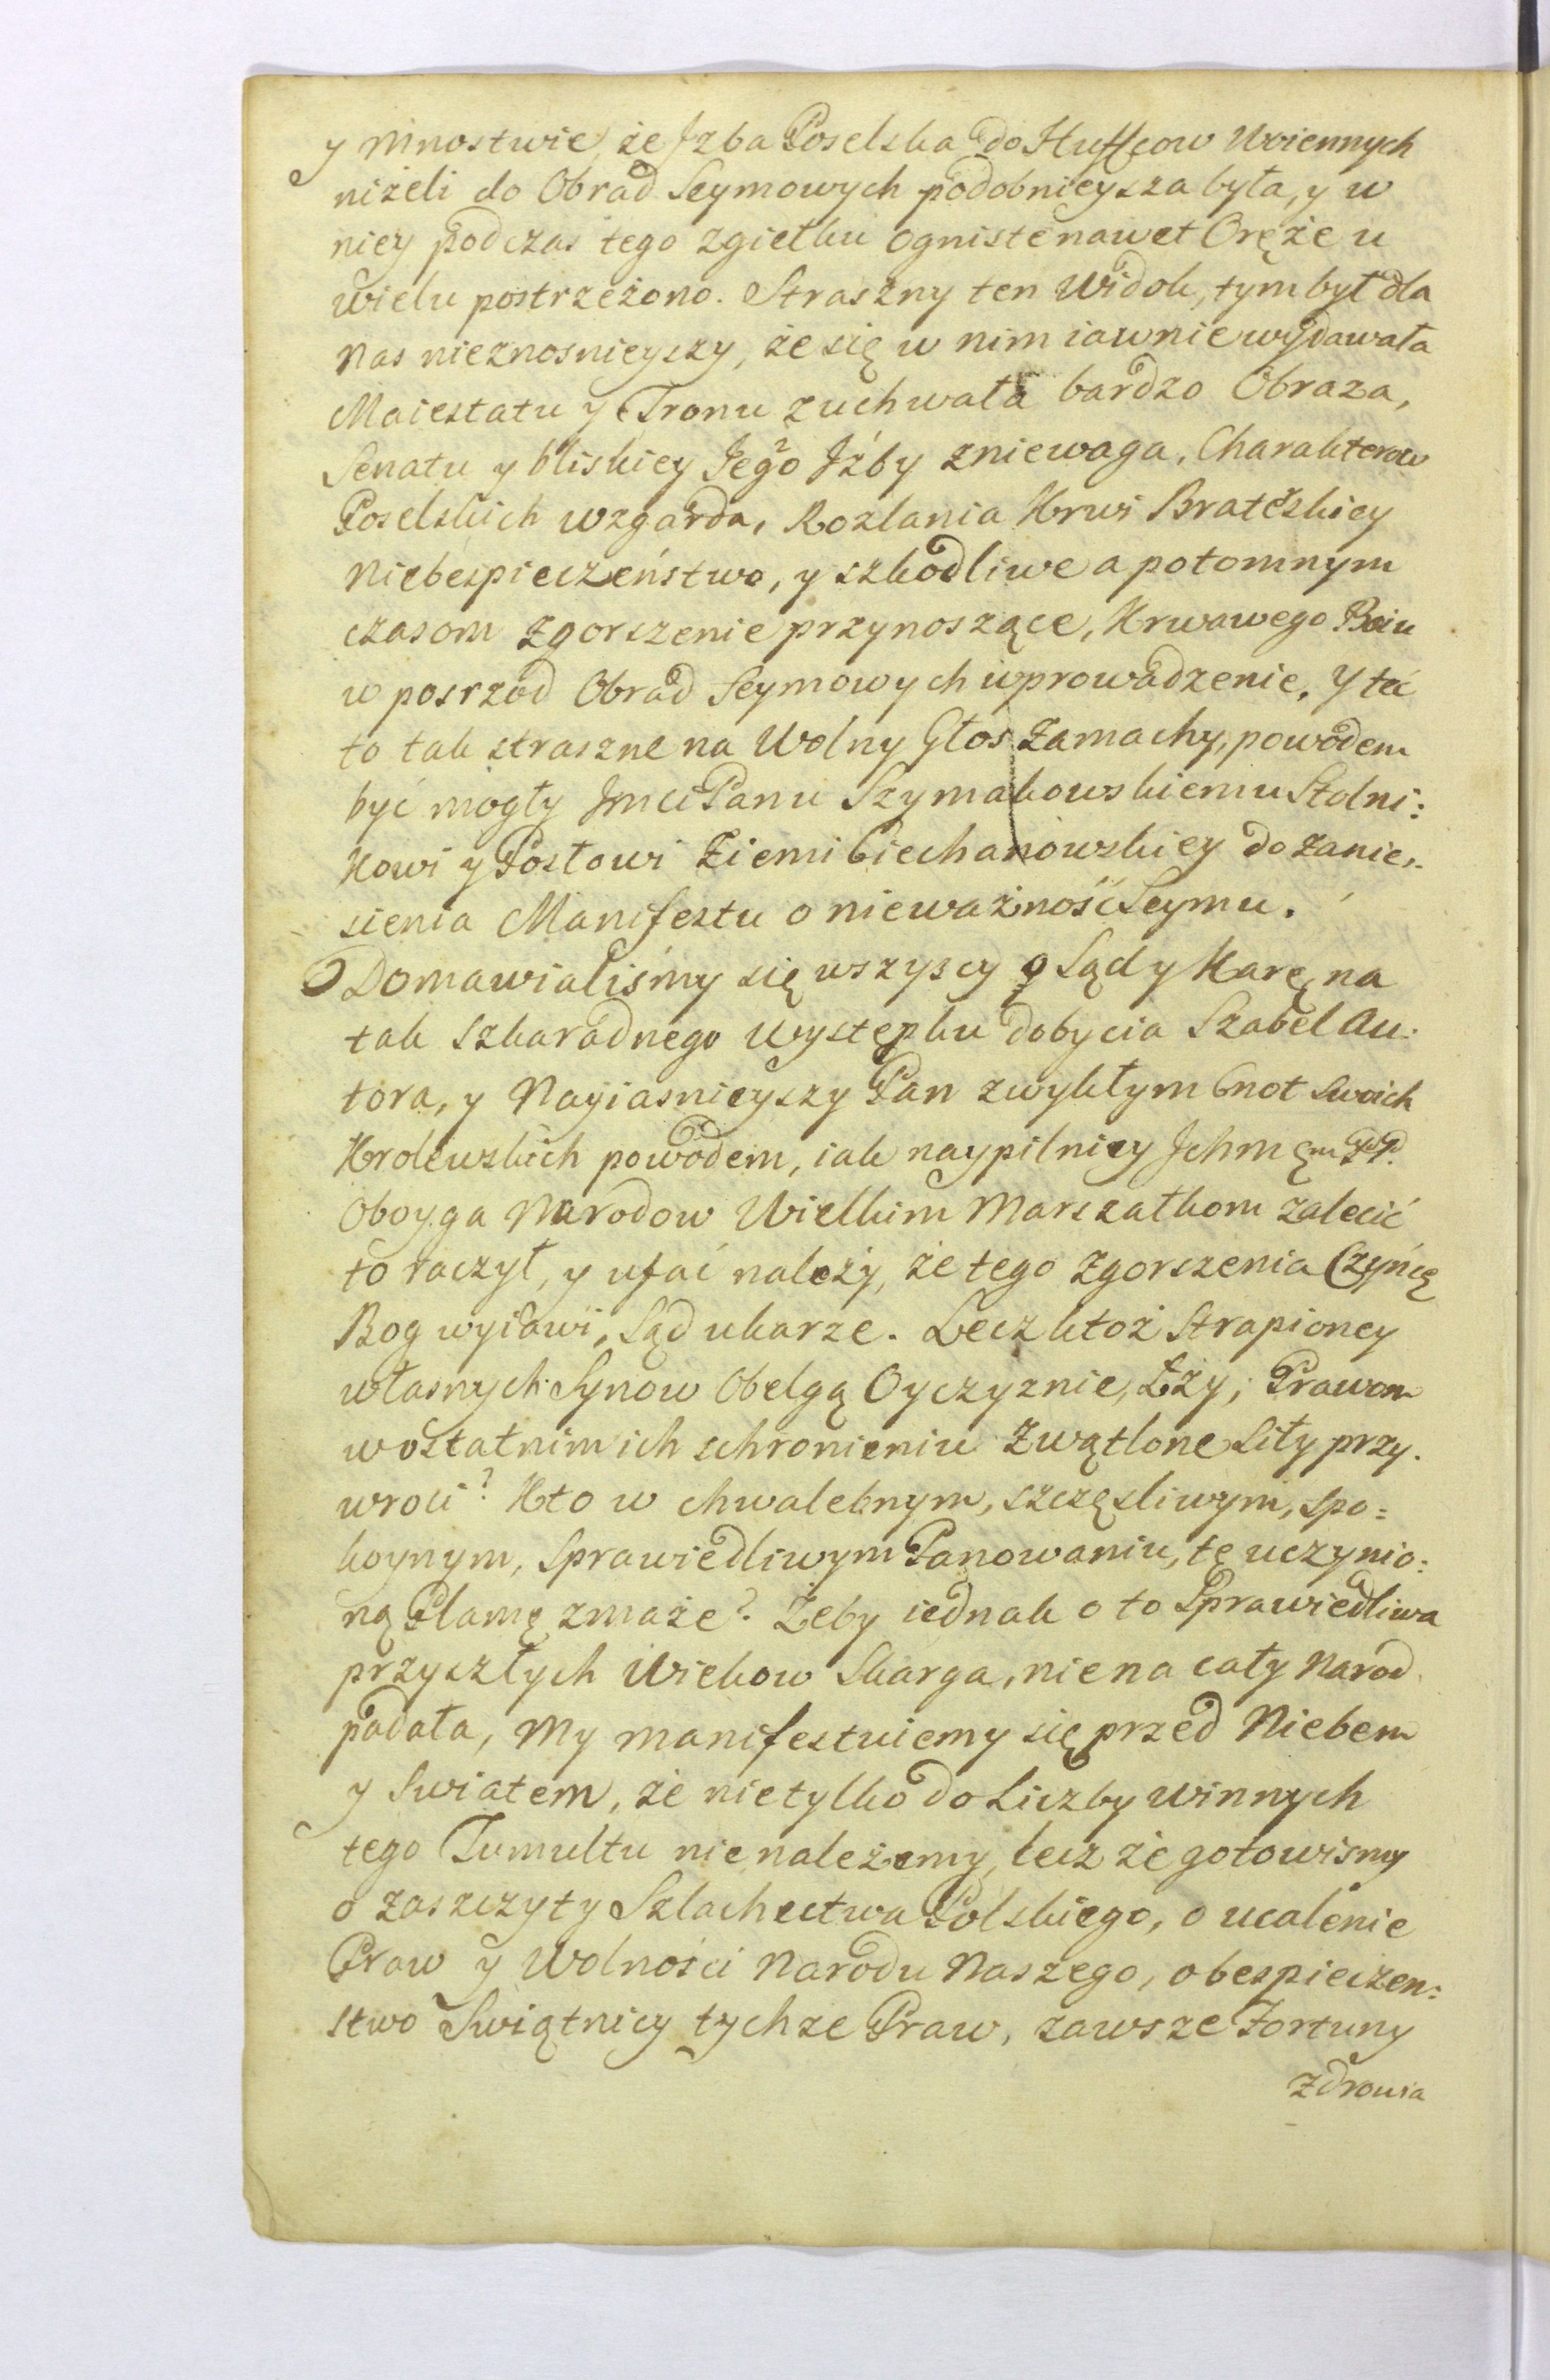 y Mnostwie, że Jzba Poselska do Huffcow Woiennych
niżeli do Obrad Seymowych podobnieysza była, y w
niey podczas tego zgiełku ogniste nawet Oręże u
wielu postrzeżono. Straszny ten Widok, tym był dla
Nas nieznosnieyszy, że się w nim iawnie wydawała
Maiestatu y Tronu zuchwała bardzo Obraza,
Senatu y bliskiey Jego Jźby zniewaga, Charakterow
Poselskich wzgarda, Rozlania Krwi Braterskiey
Niebespieczeństwo, y szkodliwe a potomnym
czasom zgorszenie przynoszące, Krwawego Boiu
w posrzod Obrad Seymowych wprowadzenie. Y te
to tak straszne na Wolny Głos Zamachy, powodem
być mogły Jmci Panu Szymakowskiemu Stolni:
kowi y Posłowi Ziemi Ciechanowskiey do zanie-
sienia Manifestu o nieważność Seymu.
Domawialiśmy się wszyscy o Sąd y Karę na
tak szkaradnego występku dobycia Szabel Au:
tora, y Nayiasnieyszy Pan zwykłym Cnot swoich
Krolewskich powodem, iak naypilniey Jchm PP.
Oboyga Narodow Wielkim Marszałkom zalecić
to raczył, y ufać należy, że tego zgorszenia Czyńcę
Bog wyiawi, Sąd ukarze. Lecz ktoż Strapioney
własnych Synow Obelgą Oyczyznie, Łzy; Prawom
w ostatnim ich schronieniu Zwątlone Siły przy.
wroci? Kto w chwalebnym, szczęsliwym, spo=
koynym, sprawiedliwym Panowaniu, tę uczynio:
ną Plamę zmaże? Żeby iednak o to Sprawiedliwa
przyszłych Wiekow Skarga, nie na cały Narod
padała, My manifestuiemy się przed Niebem
y Swiatem, że nietylko do Liczby winnych
tego Tumultu nie należemy, lecz że gotowismy
o zaszczyty Szlachectwa Polskiego, o ucalenie
Praw y Wolności Narodu Naszego, o bespieczen:
stwo Swiątnicy tychze Praw, zawsze Fortuny
Zdrowia